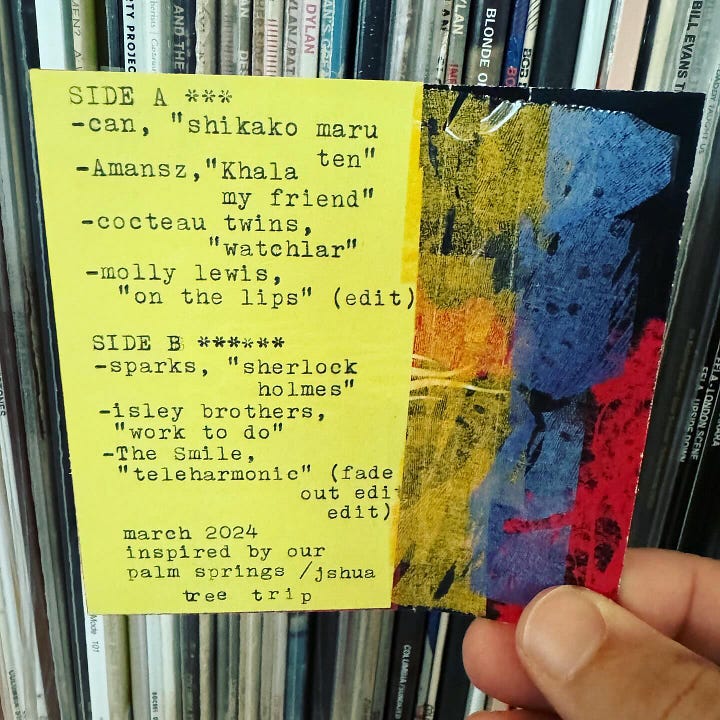 SIDE A ***
-can, "shikako maru
ten"
-Amansz,"Khala
my friend"
-cocteau twins,
"watchlar"
-molly lewis,
"on the lips" (edit)
SIDE B ******
-sparks, "sherlock
holmes"
-isley brothers,
"work to do"
-The Smile,
"teleharmonic" (fade
out edi
edit)
march 2024
inspired by our
palm springs /jshua
tree trip
DYLAN
BLONDE O
BILL EVANS
AND THE
FELA LONDON SCENE
UPSIDE DOWN